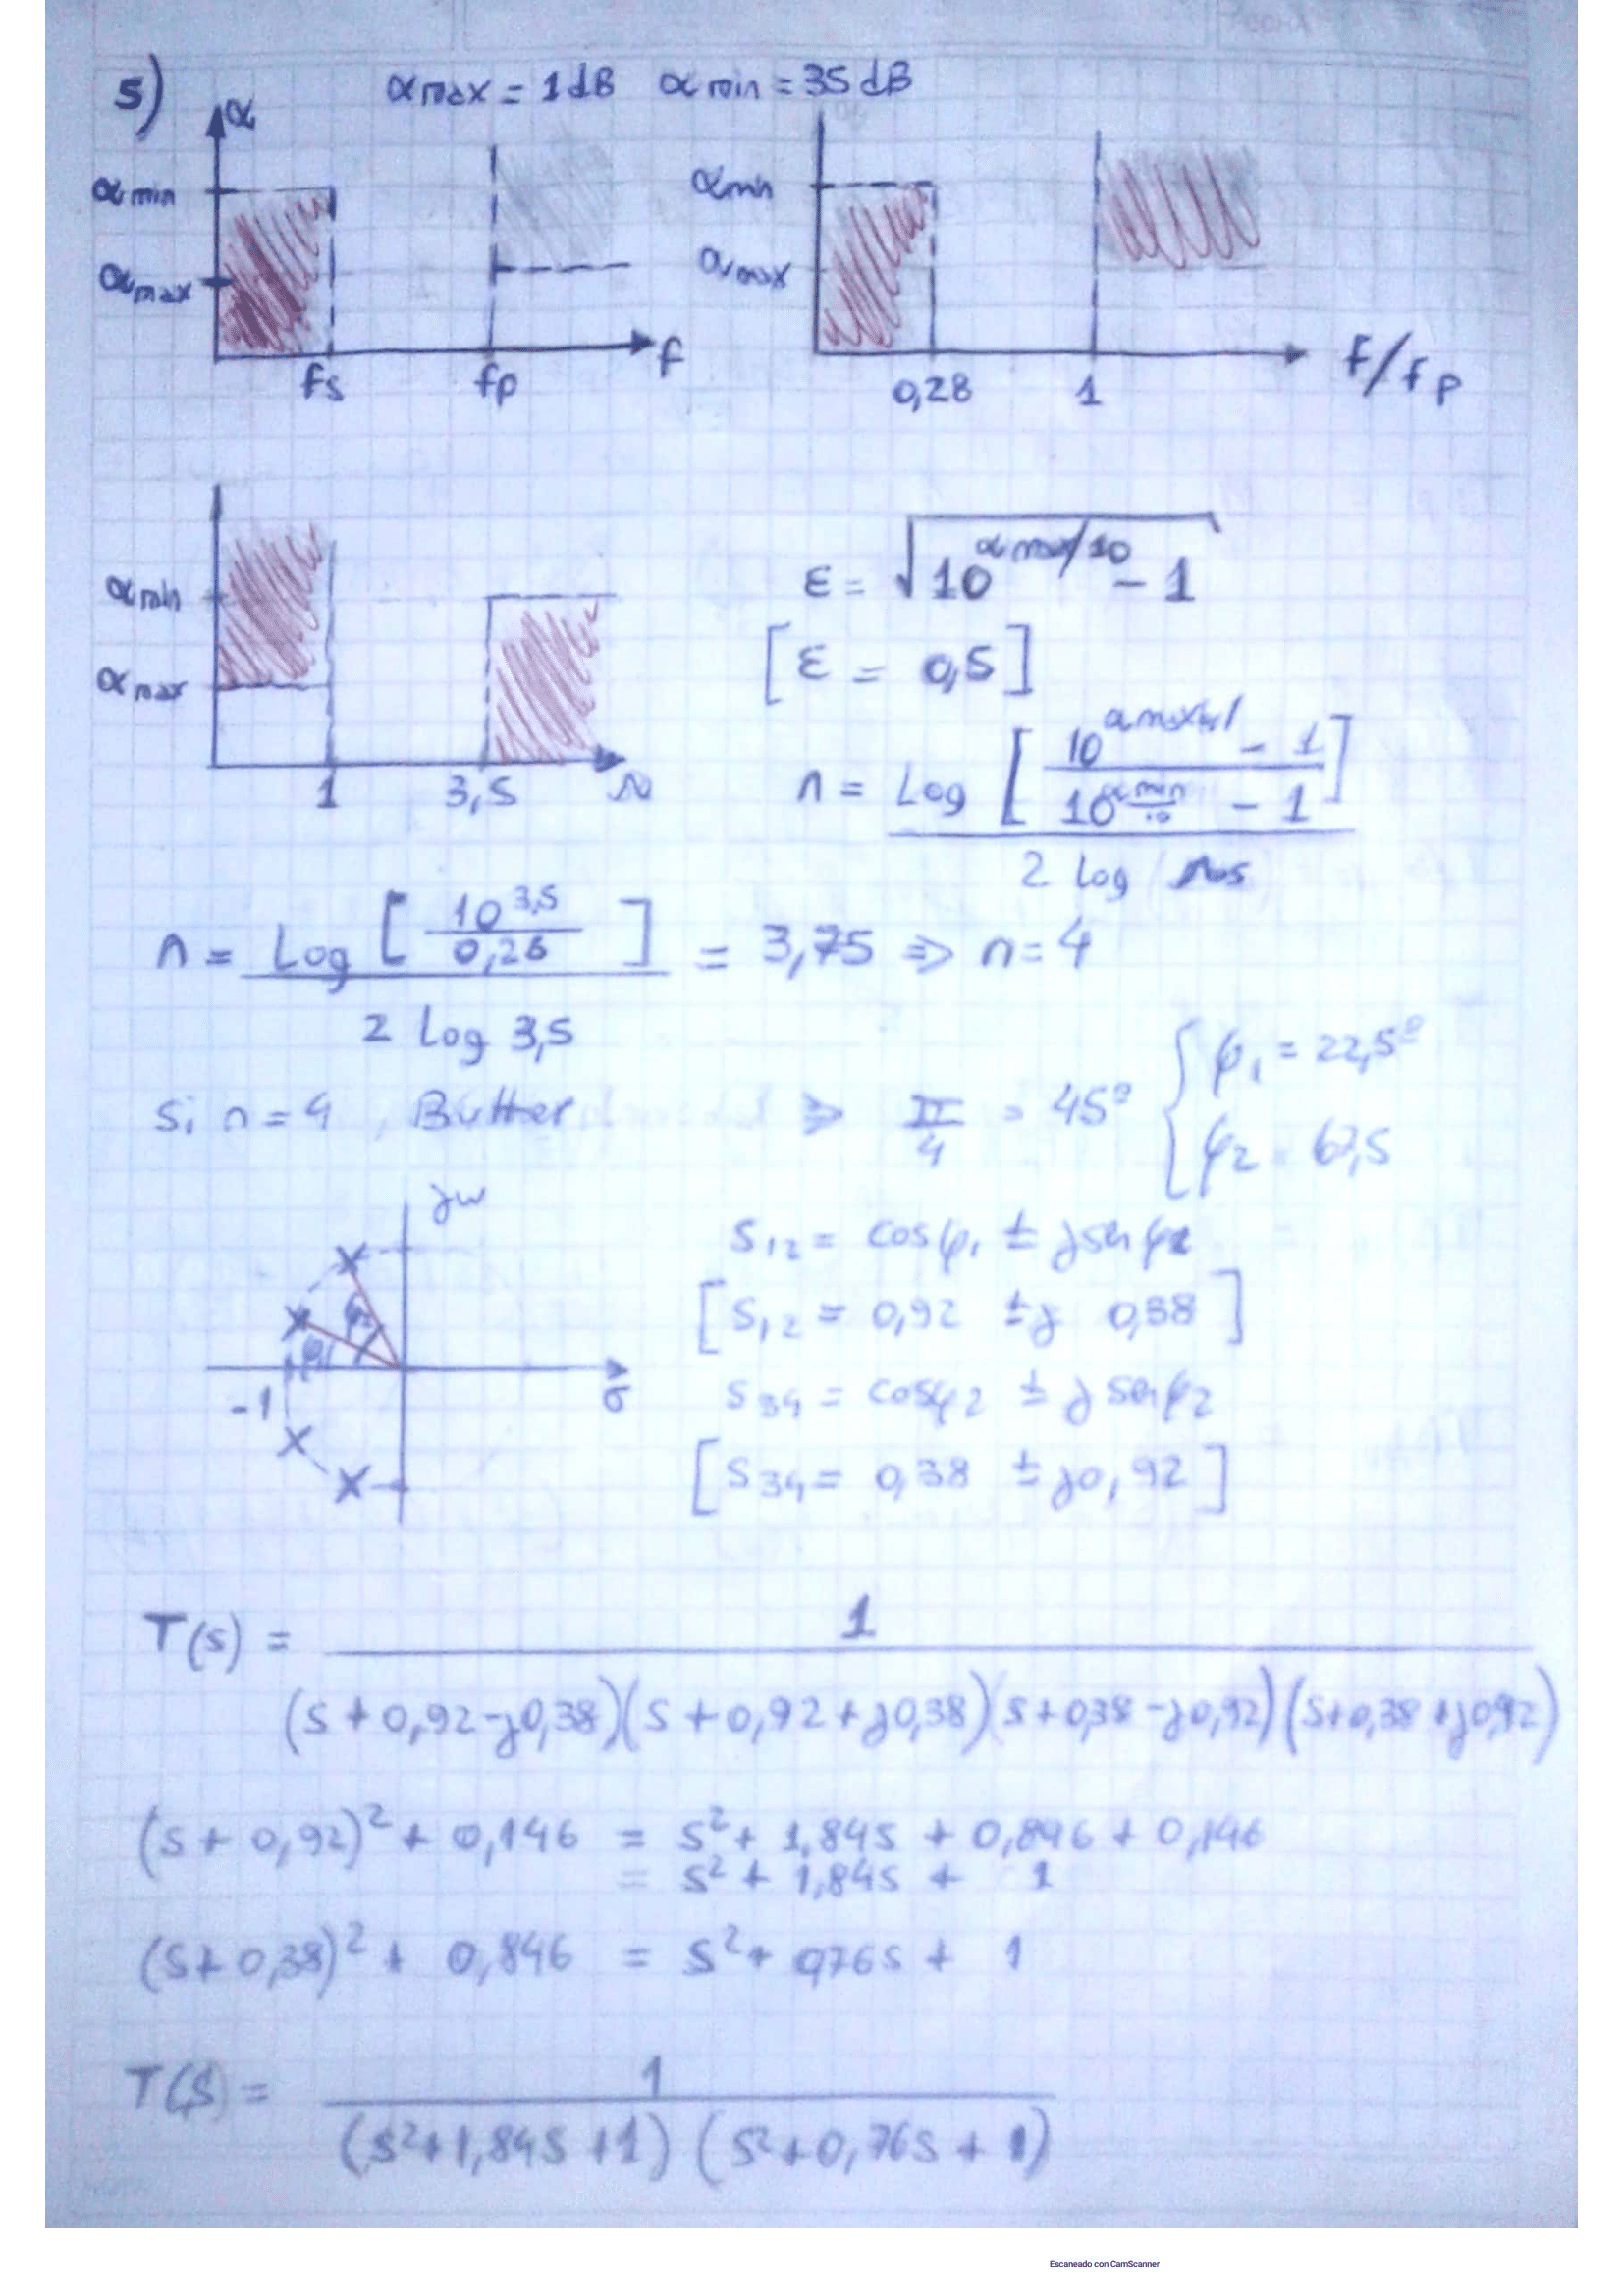 5) αmax = 1dB αmin = 35dB
α
αmin
αmax
fs fp f
αmin
αmax
0,28 1 f/fp
αmin
αmax
1 3,5 Ω
ε = √(10^(αmax/10) - 1)
[ε = 0,5]
n = Log [ (10^(αmax - 1) / (10^(αmin/10) - 1) ]
2 log
n = Log [ 10^3,5 / 0,26 ] = 3,75 ⇒ n=4
2 Log 3,5
Si n=4, Butter ⇒ π/4 = 45° { φ1 = 22,5°
φ2 = 67,5
jw
φ2
φ1
-1 σ
S12 = cosφ1 ± jsenφ2
[S12 = 0,92 ±j 0,38]
S34 = cosφ2 ± j senφ2
[S34 = 0,38 ± j0,92]
T(s) = 1
(s+0,92-j0,38)(s+0,92+j0,38)(s+0,38-j0,92)(s+0,38+j0,92)
(s+0,92)² + 0,146 = s² + 1,84s + 0,846 + 0,146
= s² + 1,84s + 1
(s+0,38)² + 0,846 = s² + 0,76s + 1
T(s) = 1
(s²+1,84s+1) (s²+0,76s+1)
Escaneado con CamScanner